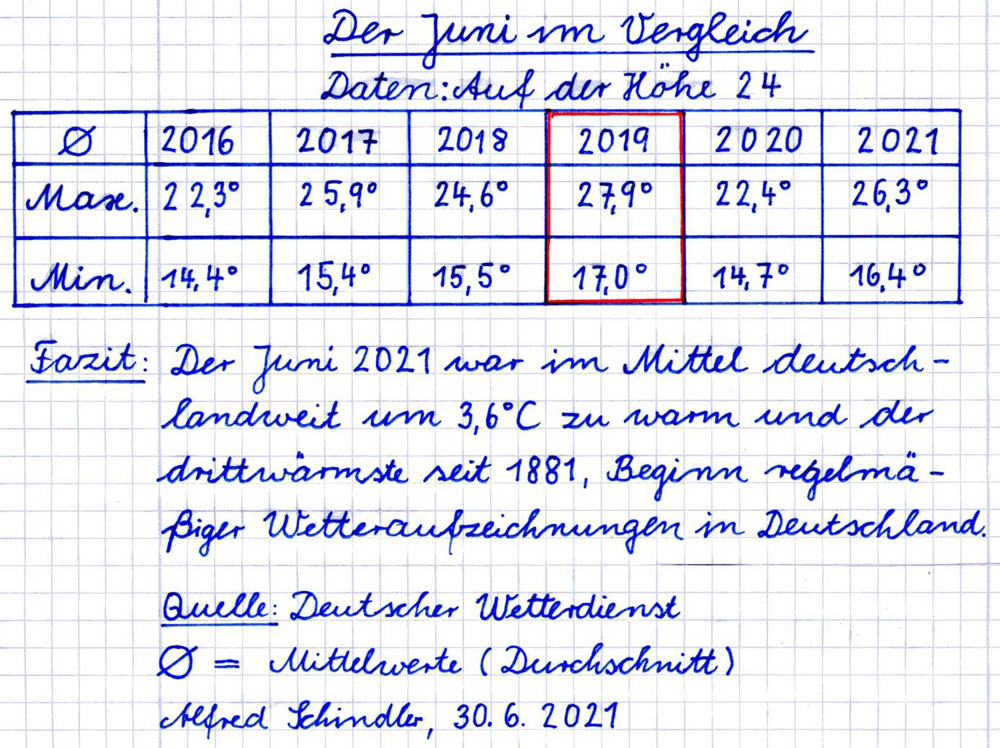 Der Juni im Vergleich
Daten: Auf der Höhe 24
Ø 2016 2017 2018 2019 2020 2021
Max. 22,3° 25,9° 24,6° 27,9° 22,4° 26,3°
Min. 14,4° 15,4° 15,5° 17,0° 14,7° 16,4°
Fazit: Der Juni 2021 war im Mittel deutsch-
landweit um 3,6°C zu warm und der
drittwärmste seit 1881, Beginn regelmä-
ßiger Wetteraufzeichnungen in Deutschland.
Quelle: Deutscher Wetterdienst
Ø = Mittelwerte (Durchschnitt)
Alfred Schindler, 30.6.2021